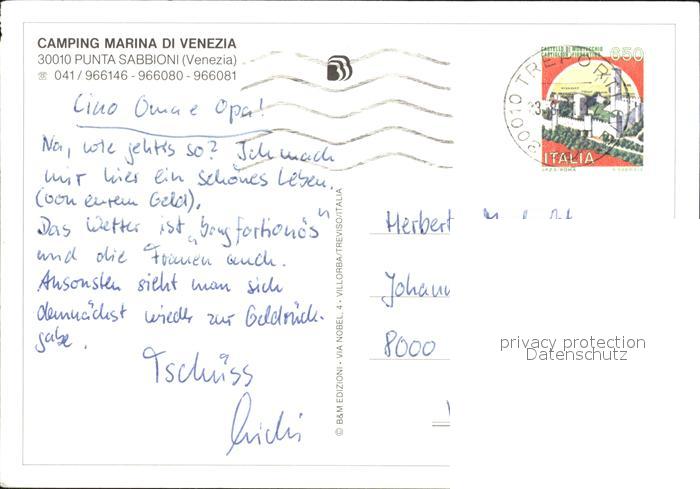 CAMPING MARINA DI VENEZIA
30010 PUNTA SABBIONI (Venezia)
☏ 041/966146 - 966080 - 966081
Ciao Oma e Opa!
Na, wie gehts so? Ich mach
mir hier ein schönes Leben.
(von eurem Geld).
Das Wetter ist
und die Frauen auch.
Ansonsten sieht man sich
demnächst wieder zur Geldrück-
gabe.
Tschüss
© B&M EDIZIONI - VIA NOBEL, 4 - VILLORBA/TREVISO/ITALIA
CASTELLO DI MONTECCHIO
CASTIGLION FIORENTINO
650
ITALIA
I.P.Z.S. ROMA
30010 TREPORTI
Herbert
Johann
8000
privacy protection
Datenschutz